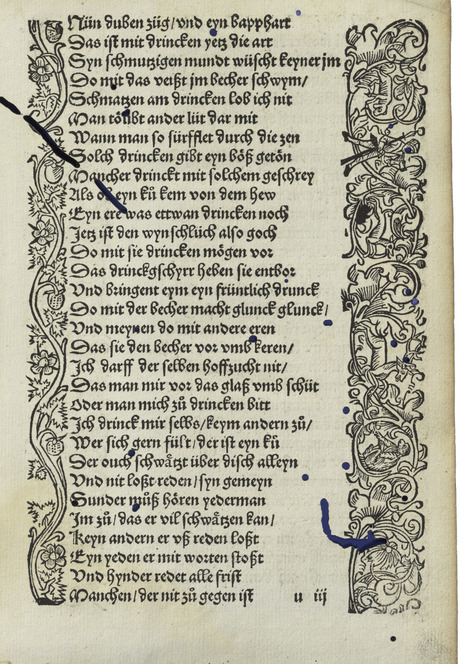 Nün duben züg/vnd eyn bapphart
Das ist mit drincken yetz die art
Syn schmutzigen mundt wüscht keyner jm
Do mit das veißt jm becher schwym/
Schmatzen am drincken lob ich nit
Man ander lüt dar mit
Wann man so sürfflet durch die zen
Solch drincken gibt eyn bőß getőn
Mancher drinckt mit solchem geschrey
Als ob eyn kü kem von dem hew
Eyn ere was ettwan drincken noch
Jetz ist den wynschlüch also goch
Do mit sie drincken mőgen vor
Das drinckgschyrr heben sie entbor
Vnd bringent eym eyn früntlich drunck
Do mit der becher macht glunck glunck/
Vnd meynen do mit andere eren
Das sie den becher vor vmb keren/
Jch darff der selben hoffzucht nit/
Das man mir vor das glaß vmb schüt
Oder man mich zů drincken bitt
Jch drinck mir selbs/keym andern zů/
Wer sich gern fült/der ist eyn kü
Der ouch schwätzt über disch alleyn
Vnd nit loßt reden/syn gemeyn
Sunder můß hőren yederman
Jm zů/das er vil schwätzen kan/
Keyn andern er vß reden loßt
Eyn yeden er mit worten stoßt
Vnd hynder redet alle frist
Manchen/der nit zů gegen ist u iij